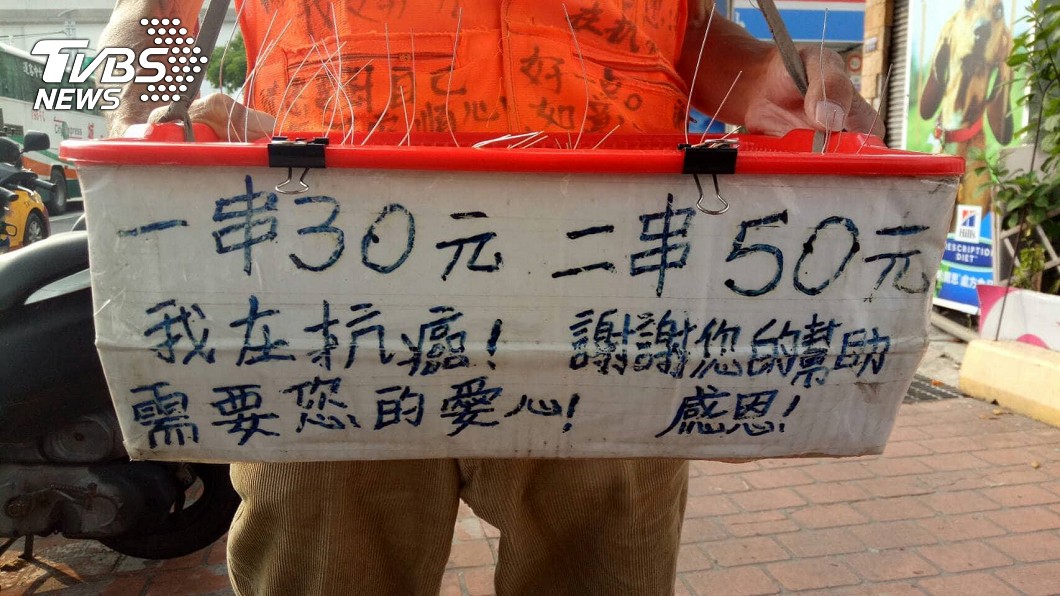 TVBS
NEWS
在抗
好
自己
如
心!
一串30元 二串50元
我在抗癌! 謝謝您的幫助
需要您的愛心! 感恩!
Hill's
ESCRIPTION
DIET